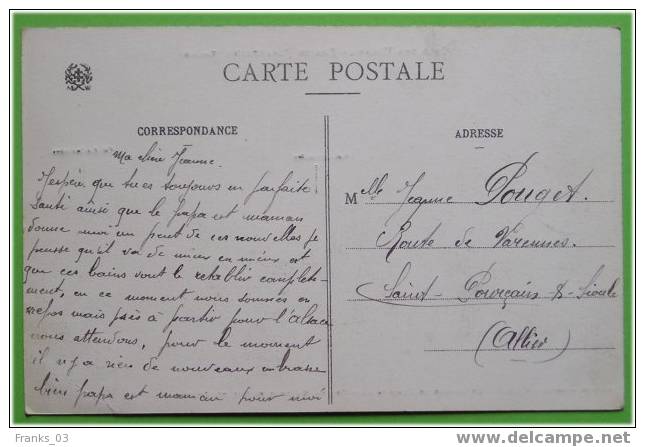 CARTE POSTALE
CORRESPONDANCE
Ma chère Jeanne.
J'espère que tu es toujours en parfaite
santé ainsi que le papa et maman
donne moi un peut de ces nouvelles je
pensse qu'il va de mieux en mieux et
que ces bains vont le retablir complete-
ment, en ce moment nous sommes en
repos mais près à partir pour l'alsace
nous attendons, pour le moment
il n'y a rien de nouveaux embrasse
bien papa et maman pour moi
ADRESSE
Mlle Jeanne Pouget.
Route de Varennes.
Saint-Pourçain s-Sioule
(Allier)
Franks_03
www.delcampe.net